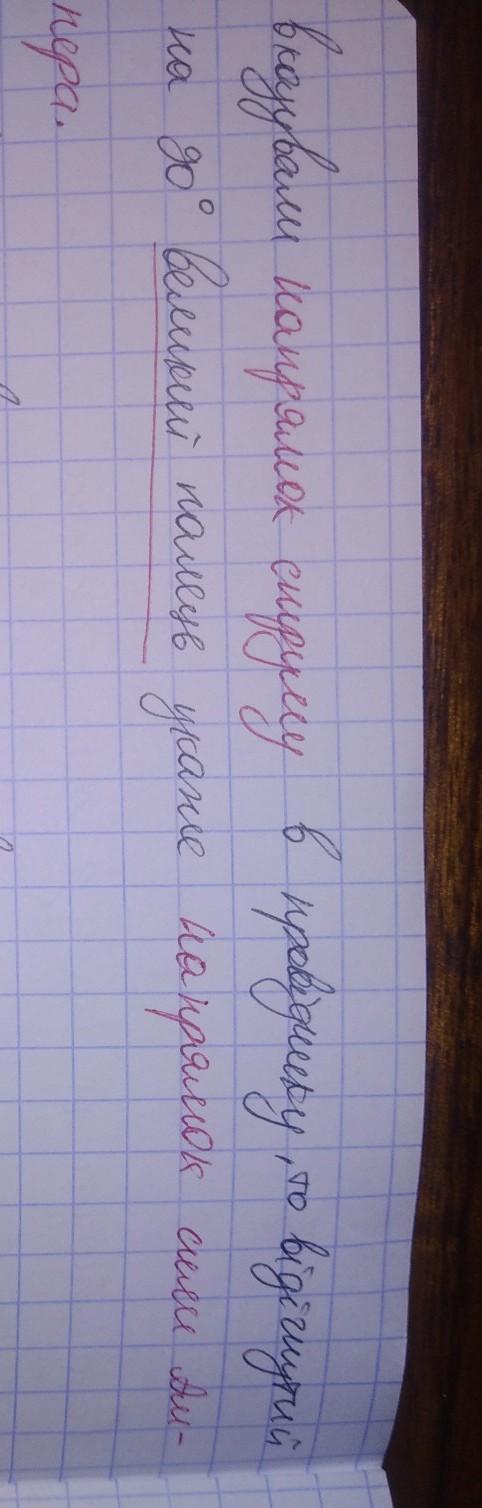 вказували напрямок струму в провіднику, то відігнутий
на 90° великий палець укаже напрямок сили Ам-
пера.